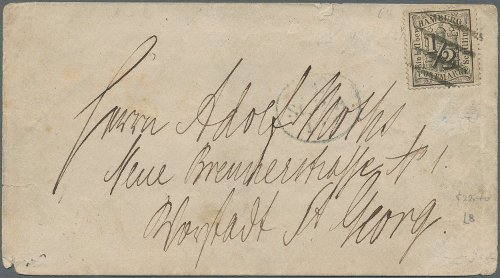 HAMBURG
1/2
POSTMARKE
Herrn Adolf Moths
Neue Brennerstrasse No 1.
Vorstadt St Georg.
LB